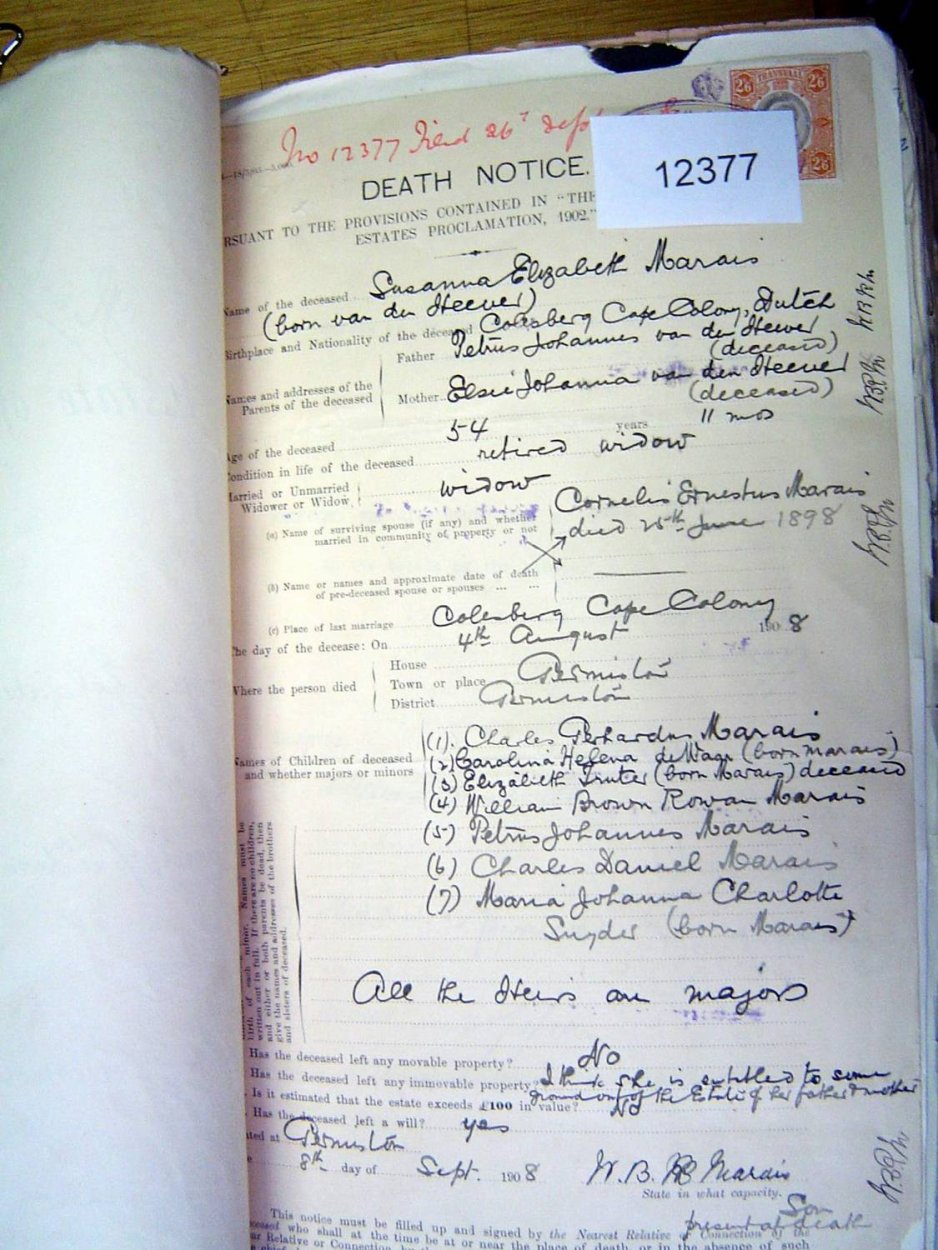 No 12377 Filed 26
TRANSVAAL
2/6 2/6
2/6
12377
DEATH NOTICE.
RSUANT TO THE PROVISIONS CONTAINED IN "THE
ESTATES PROCLAMATION, 1902."
Name of the deceased Susanna Elizabeth Marais
(born van den Heever)
Birthplace and Nationality of the deceased Colesberg Cape Colony, Dutch
Names and addresses of the Parents of the deceased
Father Petrus Johannes van den Heever
(deceased)
Mother Elsie Johanna van den Heever
(deceased)
Age of the deceased 54 years 11 mos
Condition in life of the deceased retired widow
Married or Unmarried
Widower or Widow widow
(a) Name of surviving spouse (if any) and whether
married in community of property or not
Cornelis Ernestus Marais
died 25th June 1898
(b) Name or names and approximate date of death
of pre-deceased spouse or spouses ... ...
(c) Place of last marriage Colesberg Cape Colony
The day of the decease: On 4th August 1908
Where the person died
House
Town or place Germiston
District Germiston
Names of Children of deceased
and whether majors or minors
(1). Charles Gerhardus Marais
(2) Carolina Helena de (born Marais)
(3) Elizabeth Truter (born Marais) deceased
(4) William Brown Rowan Marais
(5) Petrus Johannes Marais
(6) Charles Daniel Marais
(7) Maria Johanna Charlotte
Snyder (born Marais)
birth of each minor. Names must be
written out in full. If there are no children,
and either or both parents be dead, then
give the names and addresses of the brothers
and sisters of deceased.
All the Heirs are majors
Has the deceased left any movable property? No
Has the deceased left any immovable property? I think she is entitled to some
ground out of the Estate of her father & mother
Is it estimated that the estate exceeds £100 in value? No
Has the deceased left a will? yes
ted at Germiston
8th day of Sept. 1908
W. B. R Marais
State in what capacity.
Son
present at death
This notice must be filled up and signed by the Nearest Relative or Connection of the
ceased who shall at the time be at or near the place of death, or in the absence of such